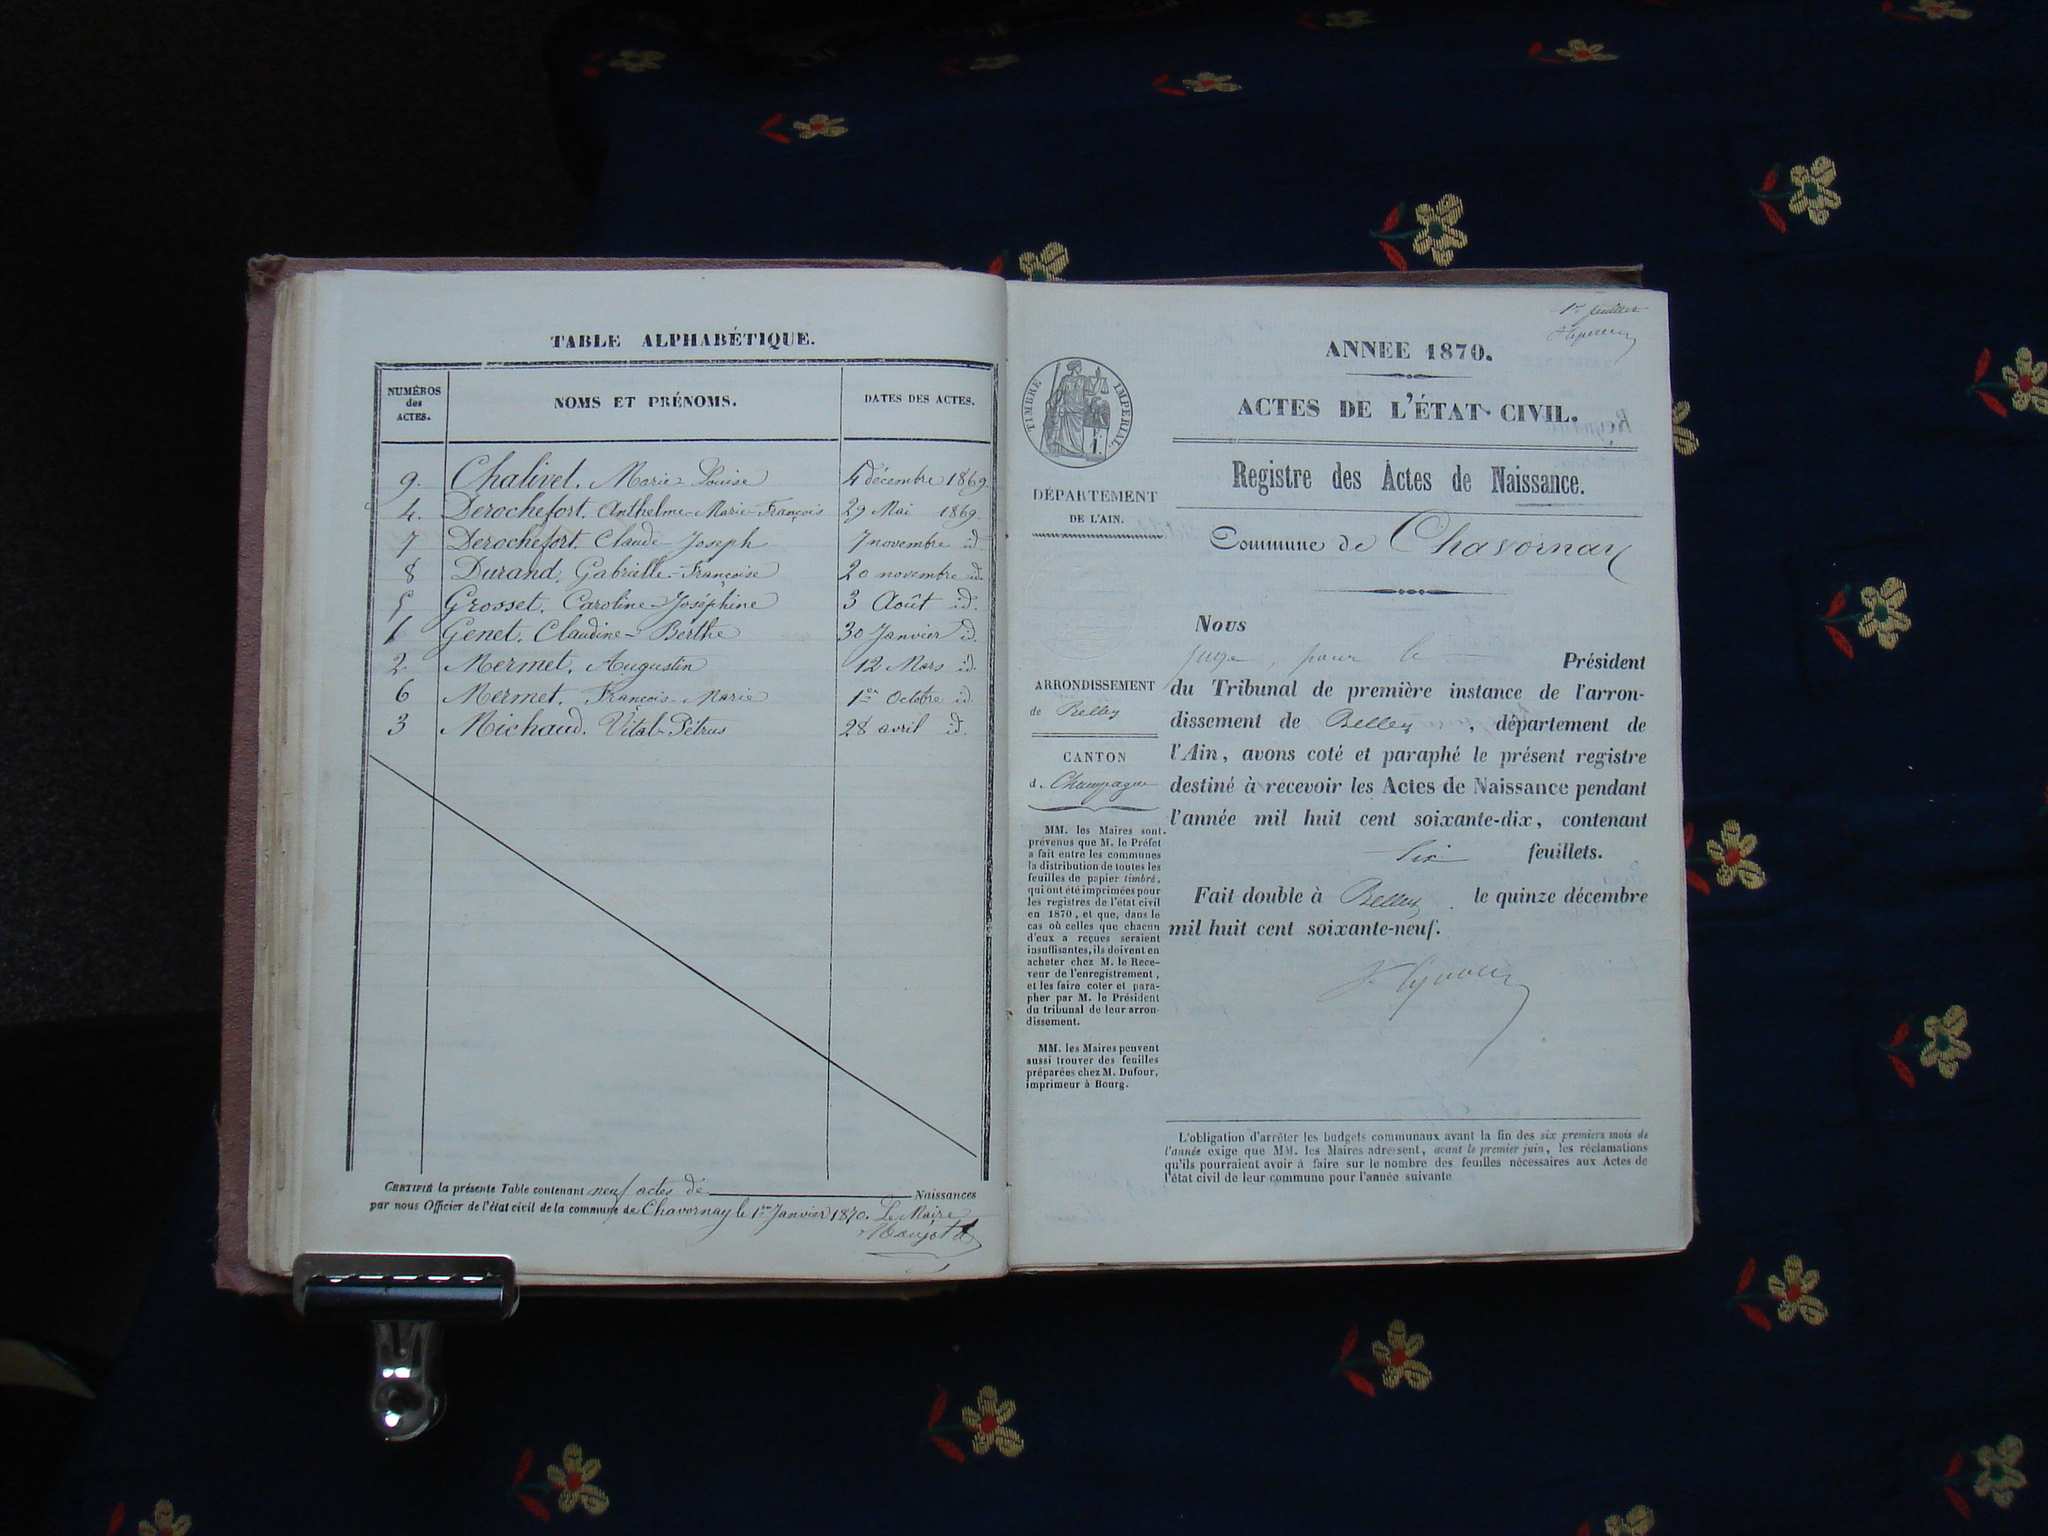 TABLE ALPHABÉTIQUE.
NUMÉROS des ACTES.
NOMS ET PRÉNOMS.
DATES DES ACTES.
9. Chalivet, Marie Louise 4 décembre 1869
4. Derochefort, Anthelme-Marie-François 29 Mai 1869.
7 Derochefort, Claude-Joseph 7 novembre id.
8 Durand, Gabrielle-Françoise 20 novembre id.
5 Grosset, Caroline-Joséphine 3 Août id.
1 Genet, Claudine-Berthe 30 Janvier id.
2 Mermet, Augustin 12 Mars id.
6 Mermet, François-Marie 1er Octobre id.
3 Michaud, Vital-Pétrus 28 avril id.
CERTIFIÉ la présente Table contenant neuf actes de Naissances
par nous Officier de l'état civil de la commune de Chavornay le 1er Janvier 1870. Le Maire
1er feuillet
ANNEE 1870.
TIMBRE IMPERIAL
ACTES DE L'ÉTAT-CIVIL.
Registre des Actes de Naissance.
DÉPARTEMENT
DE L'AIN.
Commune de Chavornay
ARRONDISSEMENT
de Belley
CANTON
de Champagne
MM. les Maires sont
prévenus que M. le Préfet
a fait entre les communes
la distribution de toutes les
feuilles de papier timbré,
qui ont été imprimées pour
les registres de l'état civil
en 1870, et que, dans le
cas où celles que chacun
d'eux a reçues seraient
insuffisantes, ils doivent en
acheter chez M. le Rece-
veur de l'enregistrement,
et les faire coter et para-
pher par M. le Président
du tribunal de leur arron-
dissement.
MM. les Maires peuvent
aussi trouver des feuilles
préparées chez M. Dufour,
imprimeur à Bourg.
Nous
juge, pour le Président
du Tribunal de première instance de l'arron-
dissement de Belley, département de
l'Ain, avons coté et paraphé le présent registre
destiné à recevoir les Actes de Naissance pendant
l'année mil huit cent soixante-dix, contenant
six feuillets.
Fait double à Belley. le quinze décembre
mil huit cent soixante-neuf.
L'obligation d'arrêter les budgets communaux avant la fin des six premiers mois de
l'année exige que MM. les Maires adressent, avant le premier juin, les réclamations
qu'ils pourraient avoir à faire sur le nombre des feuilles nécessaires aux Actes de
l'état civil de leur commune pour l'année suivante